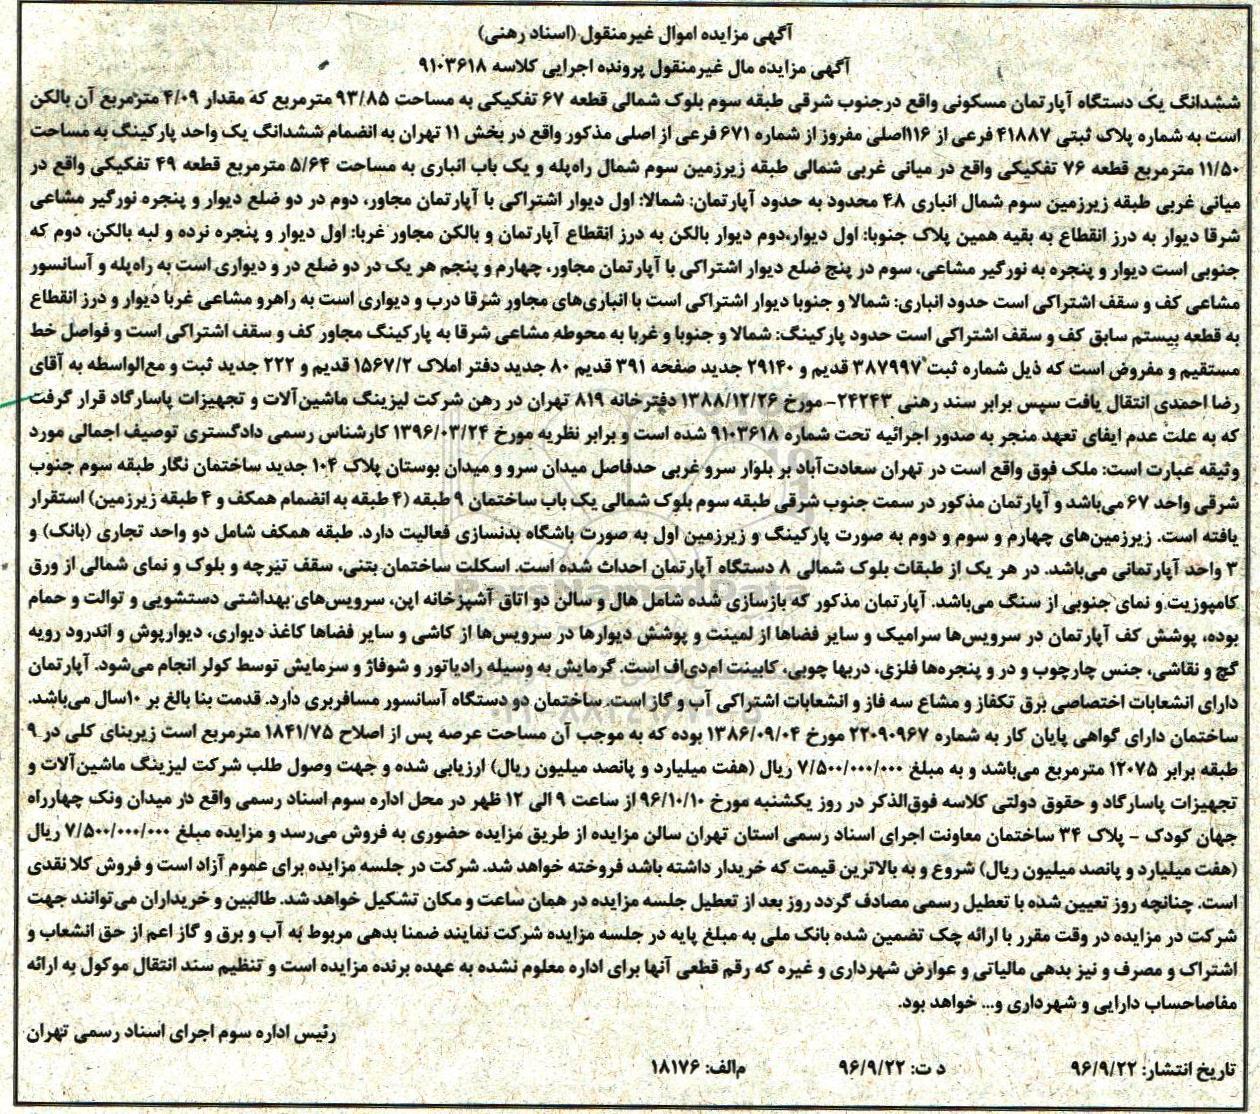 آگهی مزایده اموال غیرمنقول (اسناد رهنی)
آگهی مزایده مال غیرمنقول پرونده اجرایی کلاسه ۹۱۰۳۶۱۸
ششدانگ یک دستگاه آپارتمان مسکونی واقع درجنوب شرقی طبقه سوم بلوک شمالی قطعه ۶۷ تفکیکی به مساحت ۹۳/۸۵ مترمربع که مقدار ۴/۰۹ مترمربع آن بالکن
است به شماره پلاک ثبتی ۴۱۸۸۷ فرعی از ۱۱۶اصلی مفروز از شماره ۶۷۱ فرعی از اصلی مذکور واقع در بخش ۱۱ تهران به انضمام ششدانگ یک واحد پارکینگ به مساحت
۱۱/۵۰ مترمربع قطعه ۷۶ تفکیکی واقع در میانی غربی شمالی طبقه زیرزمین سوم شمال راه‌پله و یک باب انباری به مساحت ۵/۶۴ مترمربع قطعه ۴۹ تفکیکی واقع در
میانی غربی طبقه زیرزمین سوم شمال انباری ۴۸ محدود به حدود آپارتمان: شمالا: اول دیوار اشتراکی با آپارتمان مجاور، دوم در دو ضلع دیوار و پنجره نورگیر مشاعی
شرقا دیوار به درز انقطاع به بقیه همین پلاک جنوبا: اول دیوار،دوم دیوار بالکن به درز انقطاع آپارتمان و بالکن مجاور غربا: اول دیوار و پنجره نرده و لبه بالکن، دوم که
جنوبی است دیوار و پنجره به نورگیر مشاعی، سوم در پنج ضلع دیوار اشتراکی با آپارتمان مجاور، چهارم و پنجم هر یک در دو ضلع در و دیواری است به راه‌پله و آسانسور
مشاعی کف و سقف اشتراکی است حدود انباری: شمالا و جنوبا دیوار اشتراکی است با انباری‌های مجاور شرقا درب و دیواری است به راهرو مشاعی غربا دیوار و درز انقطاع
به قطعه بیستم سابق کف و سقف اشتراکی است حدود پارکینگ: شمالا و جنوبا و غربا به محوطه مشاعی شرقا به پارکینگ مجاور کف و سقف اشتراکی است و فواصل خط
مستقیم و مفروض است که ذیل شماره ثبت ۳۸۷۹۹۷ قدیم و ۲۹۱۴۰ جدید صفحه ۳۹۱ قدیم ۸۰ جدید دفتر املاک ۱۵۶۷/۲ قدیم و ۲۲۲ جدید ثبت و مع‌الواسطه به آقای
رضا احمدی انتقال یافت سپس برابر سند رهنی ۲۴۲۴۳- مورخ ۱۳۸۸/۱۲/۲۶ دفترخانه ۸۱۹ تهران در رهن شرکت لیزینگ ماشین‌آلات و تجهیزات پاسارگاد قرار گرفت
که به علت عدم ایفای تعهد منجر به صدور اجرائیه تحت شماره ۹۱۰۳۶۱۸ شده است و برابر نظریه مورخ ۱۳۹۶/۰۳/۲۴ کارشناس رسمی دادگستری توصیف اجمالی مورد
وثیقه عبارت است: ملک فوق واقع است در تهران سعادت‌آباد بر بلوار سرو غربی حدفاصل میدان سرو و میدان بوستان پلاک ۱۰۴ جدید ساختمان نگار طبقه سوم جنوب
شرقی واحد ۶۷ می‌باشد و آپارتمان مذکور در سمت جنوب شرقی طبقه سوم بلوک شمالی یک باب ساختمان ۹ طبقه (۴ طبقه به انضمام همکف و ۴ طبقه زیرزمین) استقرار
یافته است. زیرزمین‌های چهارم و سوم و دوم به صورت پارکینگ و زیرزمین اول به صورت باشگاه بدنسازی فعالیت دارد. طبقه همکف شامل دو واحد تجاری (بانک) و
۳ واحد آپارتمانی می‌باشد. در هر یک از طبقات بلوک شمالی ۸ دستگاه آپارتمان احداث شده است. اسکلت ساختمان بتنی، سقف تیرچه و بلوک و نمای شمالی از ورق
کامپوزیت و نمای جنوبی از سنگ می‌باشد. آپارتمان مذکور که بازسازی شده شامل هال و سالن دو اتاق آشپزخانه اپن، سرویس‌های بهداشتی دستشویی و توالت و حمام
بوده، پوشش کف آپارتمان در سرویس‌ها سرامیک و سایر فضاها از لمینت و پوشش دیوارها در سرویس‌ها از کاشی و سایر فضاها کاغذ دیواری، دیوارپوش و اندرود رویه
گچ و نقاشی، جنس چارچوب و در و پنجره‌ها فلزی، دربها چوبی، کابینت ام‌دی‌اف است. گرمایش به وسیله رادیاتور و شوفاژ و سرمایش توسط کولر انجام می‌شود. آپارتمان
دارای انشعابات اختصاصی برق تکفاز و مشاع سه فاز و انشعابات اشتراکی آب و گاز است. ساختمان دو دستگاه آسانسور مسافربری دارد. قدمت بنا بالغ بر ۱۰سال می‌باشد.
ساختمان دارای گواهی پایان کار به شماره ۲۲۰۹۰۹۶۷ مورخ ۱۳۸۶/۰۹/۰۴ بوده که به موجب آن مساحت عرصه پس از اصلاح ۱۸۴۱/۷۵ مترمربع است زیربنای کلی در ۹
طبقه برابر ۱۲۰۷۵ مترمربع می‌باشد و به مبلغ ۷/۵۰۰/۰۰۰/۰۰۰ ریال (هفت میلیارد و پانصد میلیون ریال) ارزیابی شده و جهت وصول طلب شرکت لیزینگ ماشین‌آلات و
تجهیزات پاسارگاد و حقوق دولتی کلاسه فوق‌الذکر در روز یکشنبه مورخ ۹۶/۱۰/۱۰ از ساعت ۹ الی ۱۲ ظهر در محل اداره سوم اسناد رسمی واقع در میدان ونک چهارراه
جهان کودک - پلاک ۳۴ ساختمان معاونت اجرای اسناد رسمی استان تهران سالن مزایده از طریق مزایده حضوری به فروش می‌رسد و مزایده مبلغ ۷/۵۰۰/۰۰۰/۰۰۰ ریال
(هفت میلیارد و پانصد میلیون ریال) شروع و به بالاترین قیمت که خریدار داشته باشد فروخته خواهد شد. شرکت در جلسه مزایده برای عموم آزاد است و فروش کلا نقدی
است. چنانچه روز تعیین شده با تعطیل رسمی مصادف گردد روز بعد از تعطیل جلسه مزایده در همان ساعت و مکان تشکیل خواهد شد. طالبین و خریداران می‌توانند جهت
شرکت در مزایده در وقت مقرر با ارائه چک تضمین شده بانک ملی به مبلغ پایه در جلسه مزایده شرکت نمایند ضمنا بدهی مربوط به آب و برق و گاز اعم از حق انشعاب و
اشتراک و مصرف و نیز بدهی مالیاتی و عوارض شهرداری و غیره که رقم قطعی آنها برای اداره معلوم نشده به عهده برنده مزایده است و تنظیم سند انتقال موکول به ارائه
مفاصاحساب دارایی و شهرداری و... خواهد بود.
رئیس اداره سوم اجرای اسناد رسمی تهران
تاریخ انتشار: ۹۶/۹/۲۲ د ت: ۹۶/۹/۲۲ م‌الف: ۱۸۱۷۶